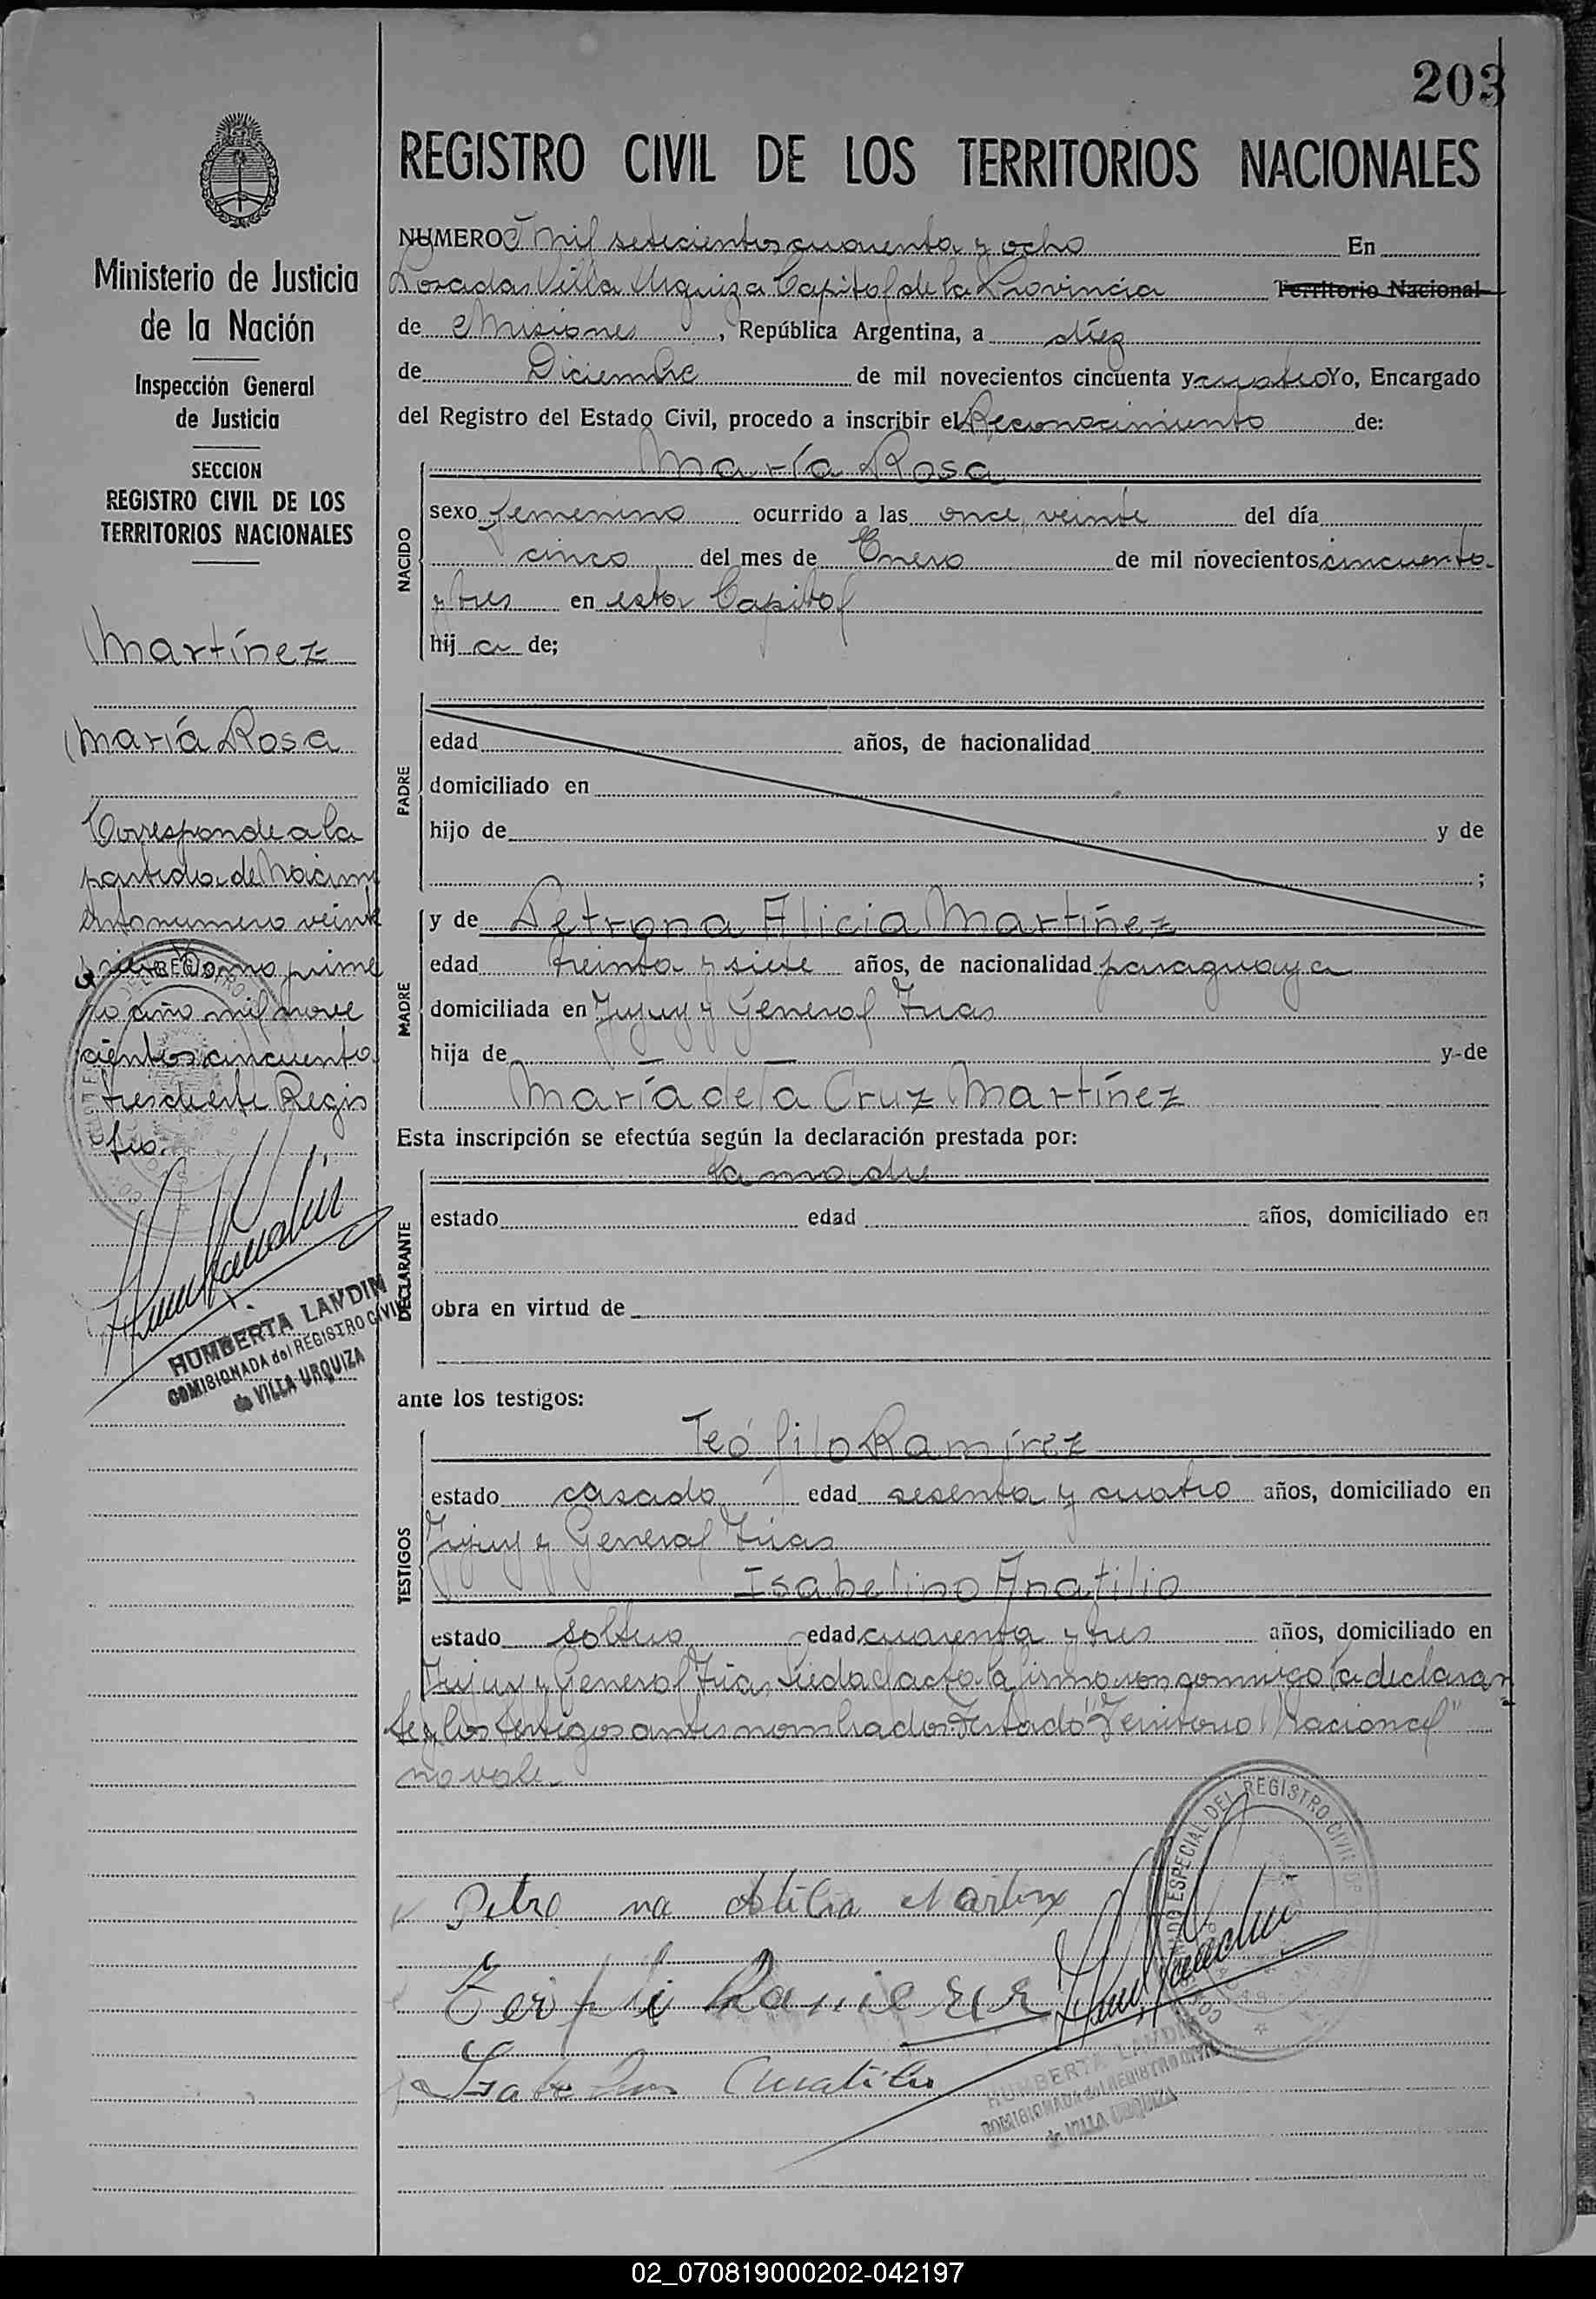 203
REGISTRO CIVIL DE LOS TERRITORIOS NACIONALES
Ministerio de Justicia
de la Nación
Inspección General
de Justicia
SECCION
REGISTRO CIVIL DE LOS
TERRITORIOS NACIONALES
Martínez
María Rosa
Corresponde a la
partida de Nacimi
ento numero veinte
y siete Tomo prime
ro año mil nove
cientos cincuenta
tres de este Regis
tro.
HUMBERTA LANDIN
COMISIONADA del REGISTRO CIVIL
de VILLA URQUIZA
NUMERO Mil setecientos cuarenta y ocho En
Posadas Villa Urquiza Capital de la Provincia Territorio Nacional
de Misiones, República Argentina, a diez
de Diciembre de mil novecientos cincuenta y cuatro Yo, Encargado
del Registro del Estado Civil, procedo a inscribir el Reconocimiento de:
María Rosa
NACIDO
sexo femenino ocurrido a las once, veinte del día
cinco del mes de Enero de mil novecientos cincuenta
y tres en esta Capital
hij a de;
PADRE
edad años, de nacionalidad
domiciliado en
hijo de y de
;
MADRE
y de Petrona Alicia Martíñez
edad treinta y siete años, de nacionalidad paraguaya
domiciliada en Jujuy y General Frias
hija de — — y de
María de la Cruz Martínez
Esta inscripción se efectúa según la declaración prestada por:
DECLARANTE
la madre
estado edad años, domiciliado en
obra en virtud de
ante los testigos:
TESTIGOS
Teófilo Ramírez
estado casado edad sesenta y cuatro años, domiciliado en
Jujuy y General Frias
Isabelino Anatilio
estado soltero edad cuarenta y tres años, domiciliado en
Jujuy y General Frias, Leida el acta la firmaron conmigo la declaran
te y los testigos antes nombrados. Testado "Territorio Nacional"
no vale.
DEL REGISTRO CIVIL
HUMBERTA LANDIN
COMISIONADA del REGISTRO CIVIL
de VILLA URQUIZA
02_070819000202-042197